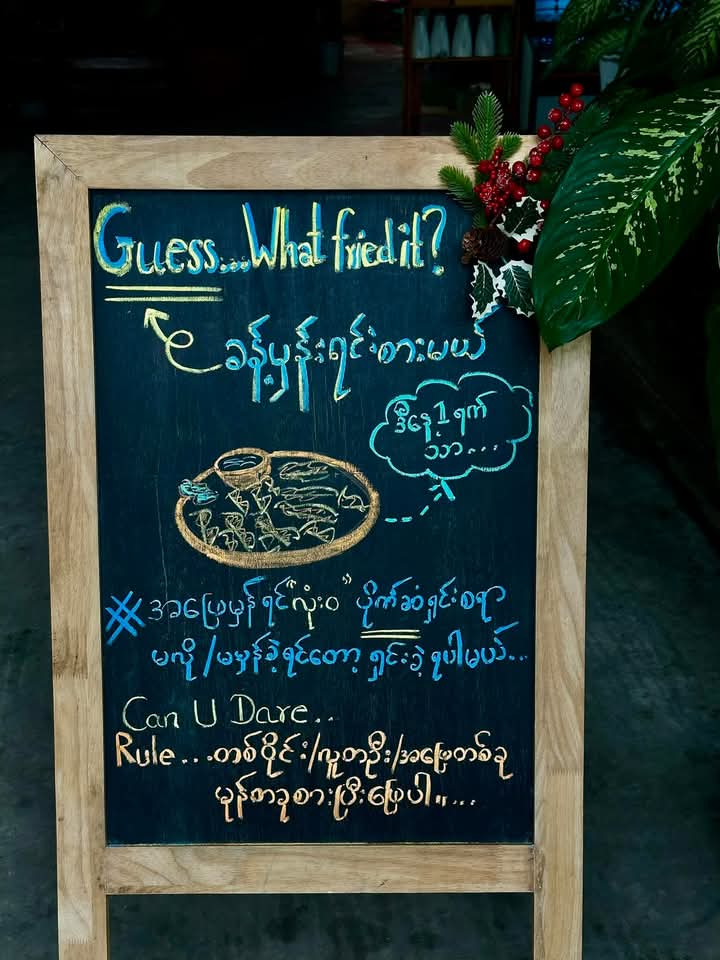 Guess...What fried it?
ခန့်မှန်းရင်းစားမယ်
ဒီနေ့ 1 ရက်
သာ...
အဖြေမှန်ရင် "လုံးဝ" ပိုက်ဆံရှင်းစရာ
မလို / မမှန်ခဲ့ရင်တော့ ရှင်းခဲ့ရပါမယ်...
Can U Dare..
Rule...တစ်ဝိုင်း/လူတဦး/အဖြေတစ်ခု
မုန့်တခုစားပြီးဖြေပါ။...